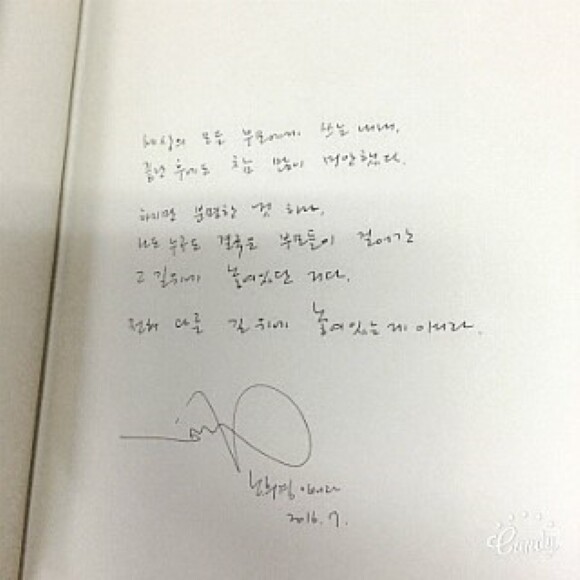 세상의 모든 부모에게 쓰는 내내,
끝난 후에도 참 많이 미안했다.
하지만 분명한 것 하나,
너도 누구도 결국은 부모들이 걸어간
그 길위에 놓여있단 거다.
전혀 다른 길 위에 놓여있는 게 아니라.
노희경입니다
2016. 7.
Candy